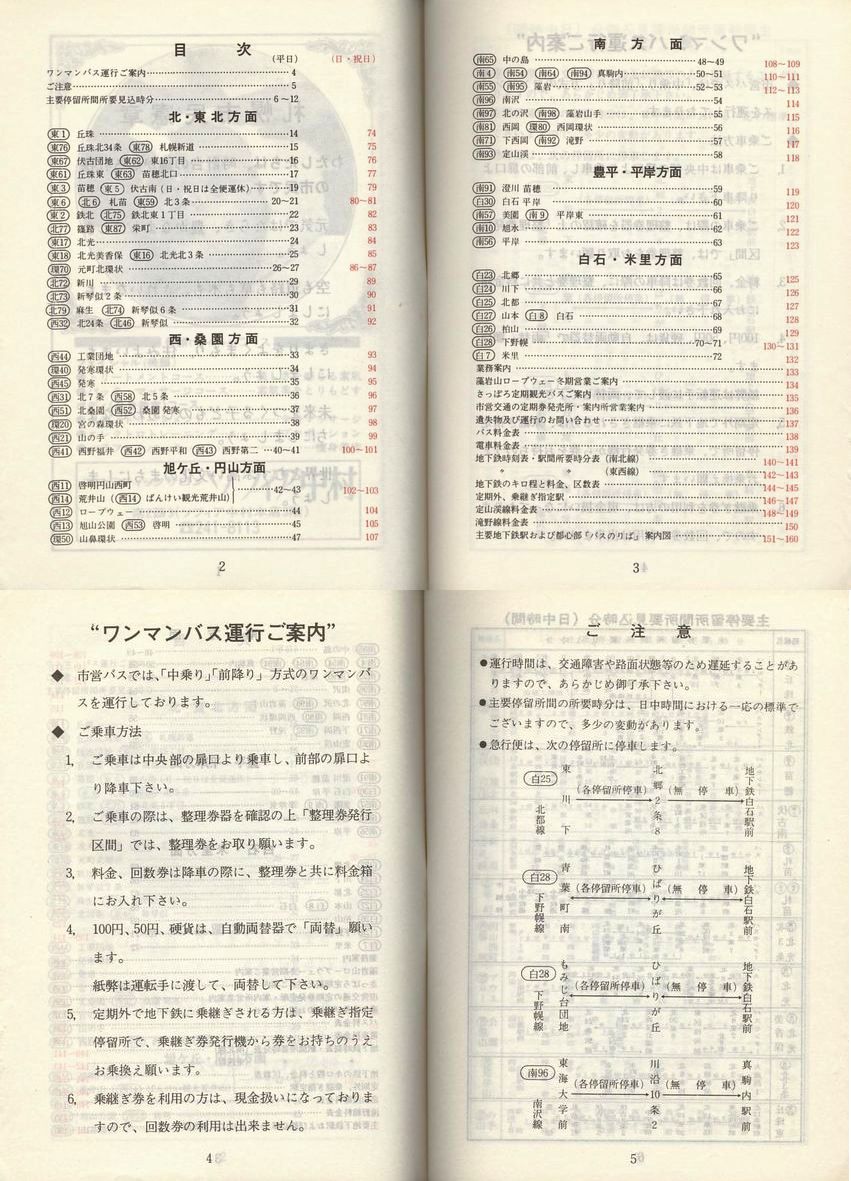 目　次
(平日)　(日・祝日)
ワンマンバス運行ご案内……4
ご注意……5
主要停留所間所要見込時分……6～12
北・東北方面
東1 丘珠……14 74
東76 丘珠北34条 東78 札幌新道……15 75
東67 伏古団地 東62 東16丁目……16 76
東61 丘珠東 東63 苗穂北口……17 77
東3 苗穂 東5 伏古南(日・祝日は全便運休)……19 79
東6 北6 札苗 東59 北3条……20～21 80～81
東2 鉄北 北75 鉄北東1丁目……22 82
北77 篠路 東87 栄町……23 83
東17 北光……24 84
東18 北光美香保 東16 北光北3条……25 85
環70 元町北環状……26～27 86～87
北72 新川……29 89
北73 新琴似2条……30 90
北79 麻生 北74 新琴似6条……31 91
西32 北24条 北46 新琴似……32 92
西・桑園方面
西44 工業団地……33 93
環40 発寒環状……34 94
西45 発寒……35 95
西31 北7条 西58 北5条……36 96
西51 北桑園 西52 桑園発寒……37 97
環20 宮の森環状……38 98
西21 山の手……39 99
西41 西野福井 西42 西野平和 西43 西野第二…40～41 100～101
旭ケ丘・円山方面
西11 啓明円山西町
西14 荒井山(西14 ばんけい観光荒井山)……42～43 102～103
西12 ロープウェー……44 104
西13 旭山公園 西53 啓明……45 105
環50 山鼻環状……47 107
2
南方面
南65 中の島……48～49 108～109
南4 南54 南64 南94 真駒内……50～51 110～111
南55 南95 藻岩……52～53 112～113
南96 南沢……54 114
南97 北の沢 南98 藻岩山手……55 115
南81 西岡 環80 西岡環状……56 116
南71 下西岡 南92 滝野……57 117
南93 定山渓……58 118
豊平・平岸方面
南91 澄川苗穂……59 119
白30 白石平岸……60 120
南57 美園 南9 平岸東……61 121
南10 旭水……62 122
南56 平岸……63 123
白石・米里方面
白23 北郷……65 125
白24 川下……66 126
白25 北都……67 127
白27 山本 白8 白石……68 128
白26 柏山……69 129
白28 下野幌……70～71 130～131
白7 米里……72 132
業務案内……133
藻岩山ロープウェー冬期営業ご案内……134
さっぽろ定期観光バスご案内……135
市営交通の定期券発売所・案内所営業案内……136
遺失物及び運行のお問い合わせ……137
バス料金表……138
電車料金表……139
地下鉄時刻表・駅間所要時分表(南北線)……140～141
〃　〃　(東西線)……142～143
地下鉄のキロ程と料金、区数表……144～145
定期外、乗継ぎ指定駅……146～147
定山渓線料金表……148～149
滝野線料金表……150
主要地下鉄駅および都心部「バスのりば」案内図……151～160
3
“ワンマンバス運行ご案内”
◆ 市営バスでは、「中乗り」「前降り」方式のワンマンバ
スを運行しております。
◆ ご乗車方法
1. ご乗車は中央部の扉口より乗車し、前部の扉口よ
り降車下さい。
2. ご乗車の際は、整理券器を確認の上「整理券発行
区間」では、整理券をお取り願います。
3. 料金、回数券は降車の際に、整理券と共に料金箱
にお入れ下さい。
4. 100円、50円、硬貨は、自動両替器で「両替」願い
ます。
紙弊は運転手に渡して、両替して下さい。
5. 定期外で地下鉄に乗継ぎされる方は、乗継ぎ指定
停留所で、乗継ぎ券発行機から券をお持ちのうえ
お乗換え願います。
6. 乗継ぎ券を利用の方は、現金扱いになっておりま
すので、回数券の利用は出来ません。
4
ご注意
●運行時間は、交通障害や路面状態等のため遅延することがあ
りますので、あらかじめ御了承下さい。
●主要停留所間の所要時分は、日中時間における一応の標準で
ございますので、多少の変動があります。
●急行便は、次の停留所に停車します。
白25 北都線 東川下 (各停留所停車) 北郷2条8 (無停車) 地下鉄白石駅前
白28 下野幌線 青葉町南 (各停留所停車) ひばりが丘 (無停車) 地下鉄白石駅前
白28 下野幌線 もみじ台団地 (各停留所停車) ひばりが丘 (無停車) 地下鉄白石駅前
南96 南沢線 東海大学前 (各停留所停車) 川沿10条2 (無停車) 真駒内駅前
5